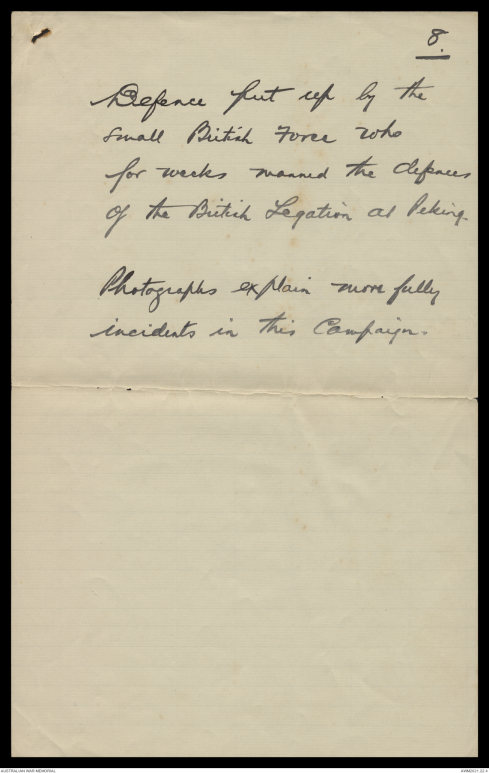 8.
Defence put up by the
small British Force who
for weeks manned the defences
of the British Legation at Peking.
Photographs explain more fully
incidents in this Campaign.
AUSTRALIAN WAR MEMORIAL